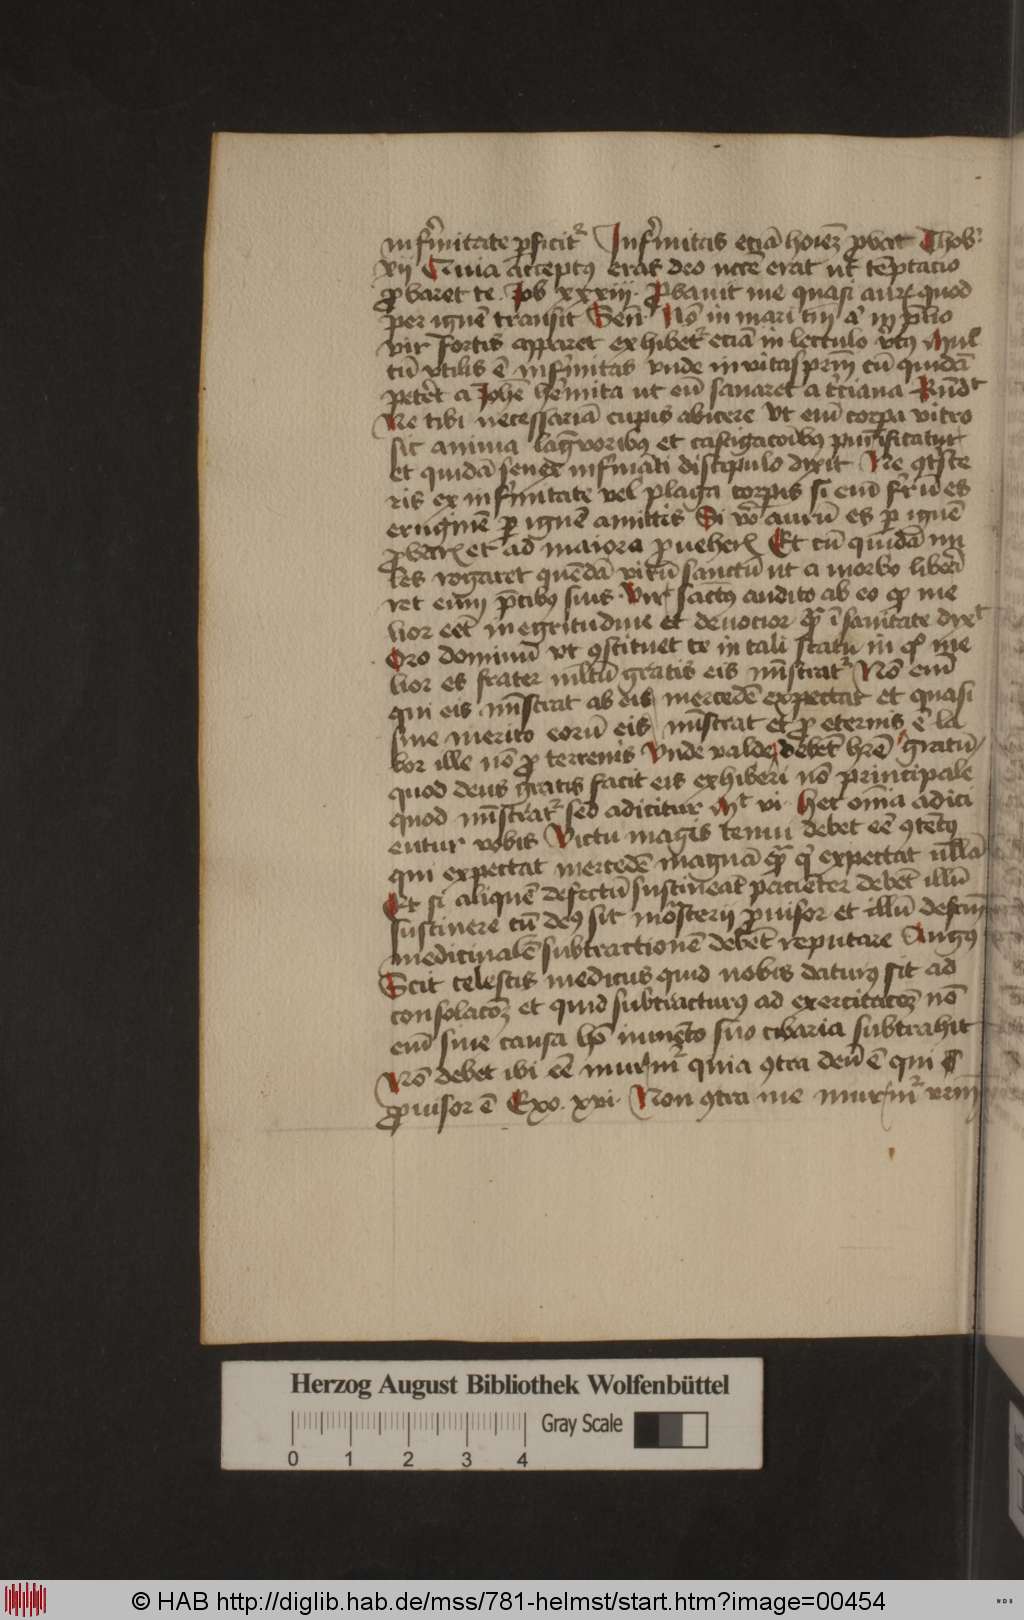 infirmitate perficitur Infirmitas eciam hominem probat Thob.
xij Quia acceptus eras deo necesse erat ut temptacio
probaret te. Job xxxiij. Probauit me quasi aurum quod
per ignem transit Sen. Non in mari tantum aut in prelio
vir fortis apparet exhibetur eciam in lectulo virtus Mul
tum vtilis est infirmitas vnde in vitaspatrum cum quidam
peteret a Johanne heremita ut eum sanaret a terciana Respondit
Rem tibi necessariam cupis abicere Vt enim corpora nitro
sic anima languoribus et castigacionibus purificatur
et quidam senex infirmanti discipulo dixit Ne contriste
ris ex infirmitate vel plaga corporis si enim ferrum es
eruginem per ignem amittis Si vero aurum es per ignem
probaris et ad maiora proueheris Et cum quidam mi
les rogaret quendam virum sanctum ut a morbo libera
ret eum precibus suis. Vir sanctus audito ab eo quod me
lior esset in egritudine et deuocior quam in sanitate dixit
Oro dominum vt constituet te in tali statu in quo me
lior es frater multum gratis eis ministratur Non enim
qui eis ministrat ab eis mercedem expectat et quasi
sine merito eorum eis ministrat et pro eternis est la
bor ille non pro terrenis Vnde valde debet habere gratum
quod deus gratis facit eis exhiberi non principale
quod ministratur sed adicitur Mt vi. Hec omnia adici
entur vobis Victu magis tenui debet esse contentus
qui expectat mercedem magnam quam qui expectat nullam
Et si aliquem defectum sustineat pacienter debet illum
sustinere cum deus sit monasterii prouisor et illum defectum
medicinalem subtractionem debet reputare Augus
Scit celestis medicus quid nobis daturus sit ad
consolacionem et quid subtracturus ad exercitacionem non
enim sine causa homo iumento suo cibaria subtrahit
Non debet ibi esse murmur quia contra deum est qui
prouisor est Exo. xvi. Non contra me murmur vestrum
Herzog August Bibliothek Wolfenbüttel
Gray Scale
0 1 2 3 4
© HAB http://diglib.hab.de/mss/781-helmst/start.htm?image=00454